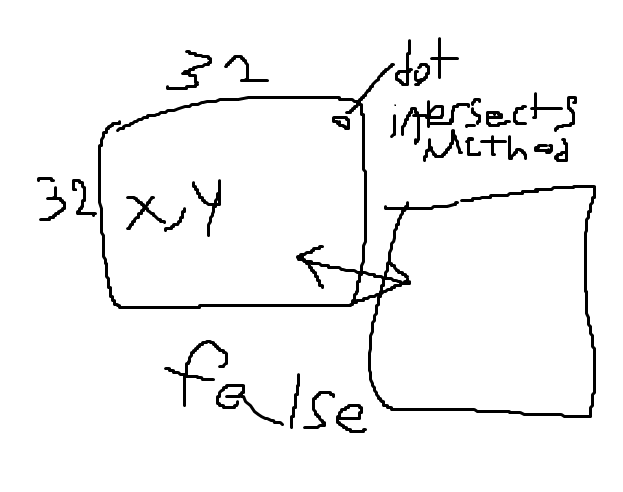 32
dot
intersects
Method
32
x,y
false